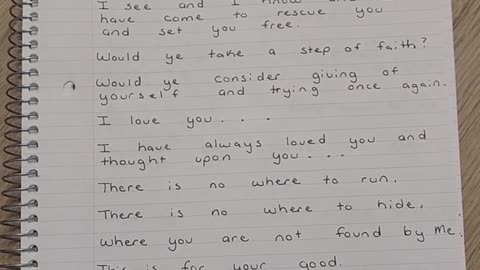 I see and I know and I
have come to rescue you
and set you free.
Would ye take a step of faith?
Would ye consider giving of
yourself and trying once again.
I love you...
I have always loved you and
thought upon you...
There is no where to run.
There is no where to hide,
where you are not found by Me.
This is for your good.